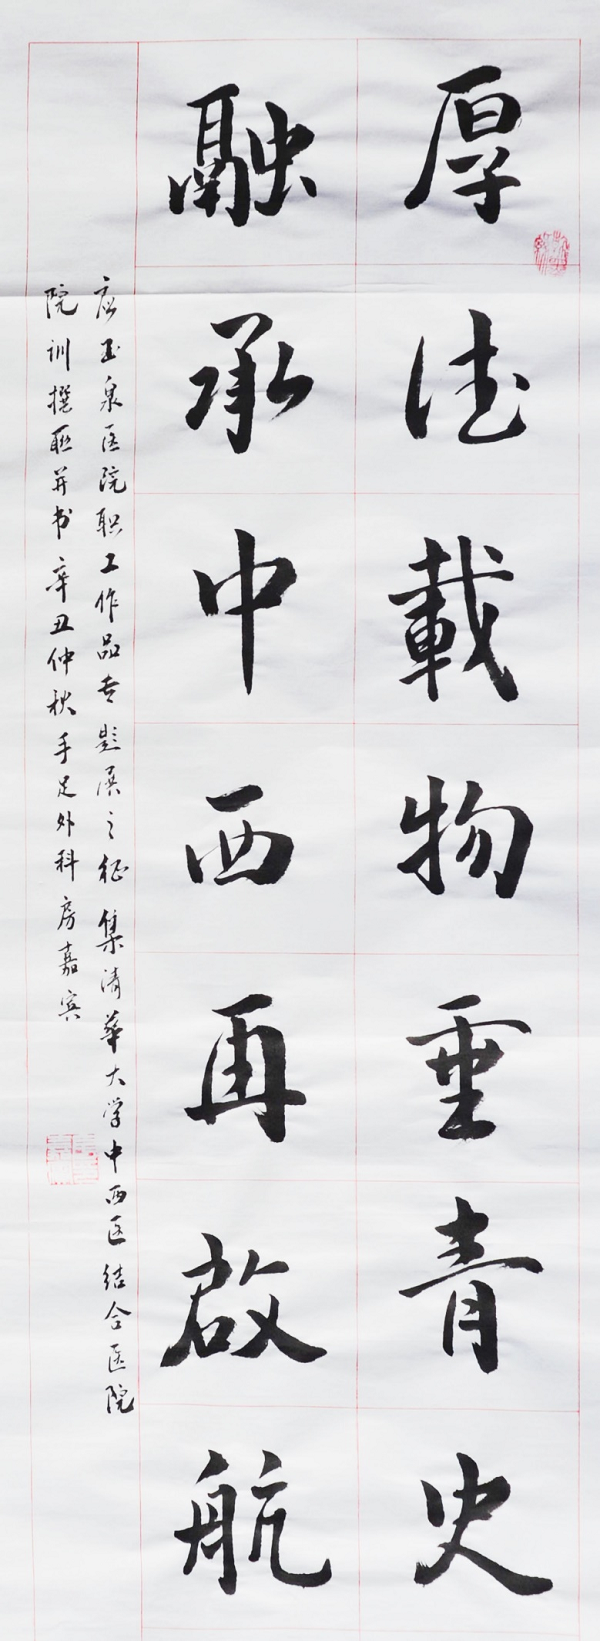 厚德載物垂青史
融承中西再啟航
应玉泉医院职工作品专题展之征集清华大学中西医结合医院
院训撰联并书辛丑仲秋手足外科房嘉宾